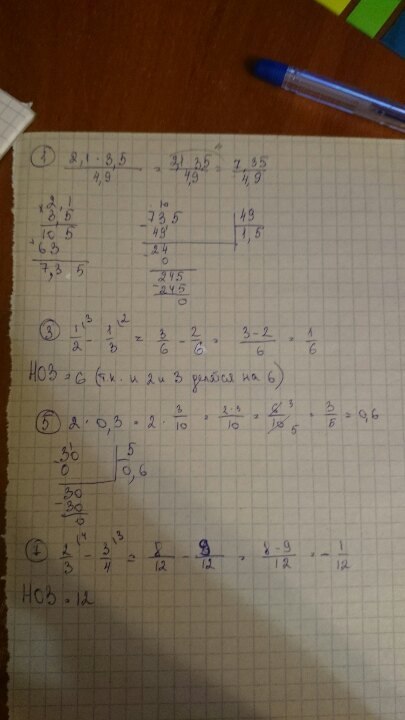 ① 2,1 · 3,5 / 4,9 = 2,1 3,5 / 4,9 = 7,35 / 4,9
× 2,1
3,5
10 5
+ 63
7,3 5
10
- 735 | 49
49 | 1,5
- 24
0
245
- 245
0
③ 1/2 \3 - 1/3 \2 = 3/6 - 2/6 = 3-2 / 6 = 1/6
НОЗ = 6 (т.к. и 2 и 3 делятся на 6)
⑤ 2 · 0,3 = 2 · 3/10 = 2·3 / 10 = 6 3 / 10 5 = 3/5 = 0,6
- 30 | 5
0 | 0,6
- 30
30
0
⑦ 2/3 \4 - 3/4 \3 = 8/12 - 9/12 = 8-9 / 12 = - 1/12
НОЗ = 12